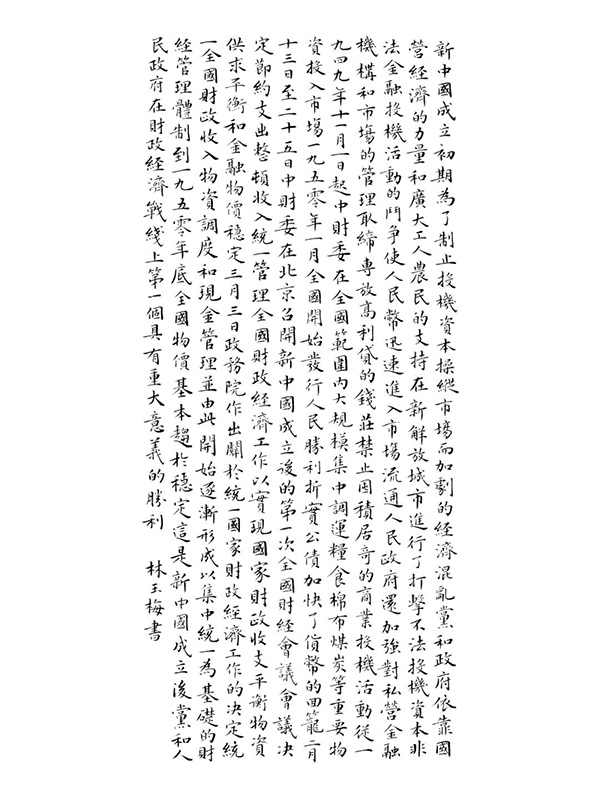 新中國成立初期為了制止投機資本操縱市場而加劇的經濟混亂黨和政府依靠國
營經濟的力量和廣大工人農民的支持在新解放城市進行了打擊不法投機資本非
法金融投機活動的鬥争使人民幣迅速進入市場流通人民政府還加強對私營金融
機構和市場的管理取締專放高利貸的錢莊禁止囤積居奇的商業投機活動從一
九四九年十一月一日起中財委在全國範圍内大規模集中調運糧食棉布煤炭等重要物
資投入市場一九五零年一月全國開始發行人民勝利折實公債加快了貨幣的回籠二月
十三日至二十五日中財委在北京召開新中國成立後的第一次全國財經會議會議决
定節約支出整頓收入統一管理全國財政經濟工作以實現國家財政收支平衡物資
供求平衡和金融物價穩定三月三日政務院作出關於統一國家財政經濟工作的决定統
一全國財政收入物資調度和現金管理並由此開始逐漸形成以集中統一為基礎的財
經管理體制到一九五零年底全國物價基本趨於穩定這是新中國成立後黨和人
民政府在財政經濟戰綫上第一個具有重大意義的勝利 林玉梅書